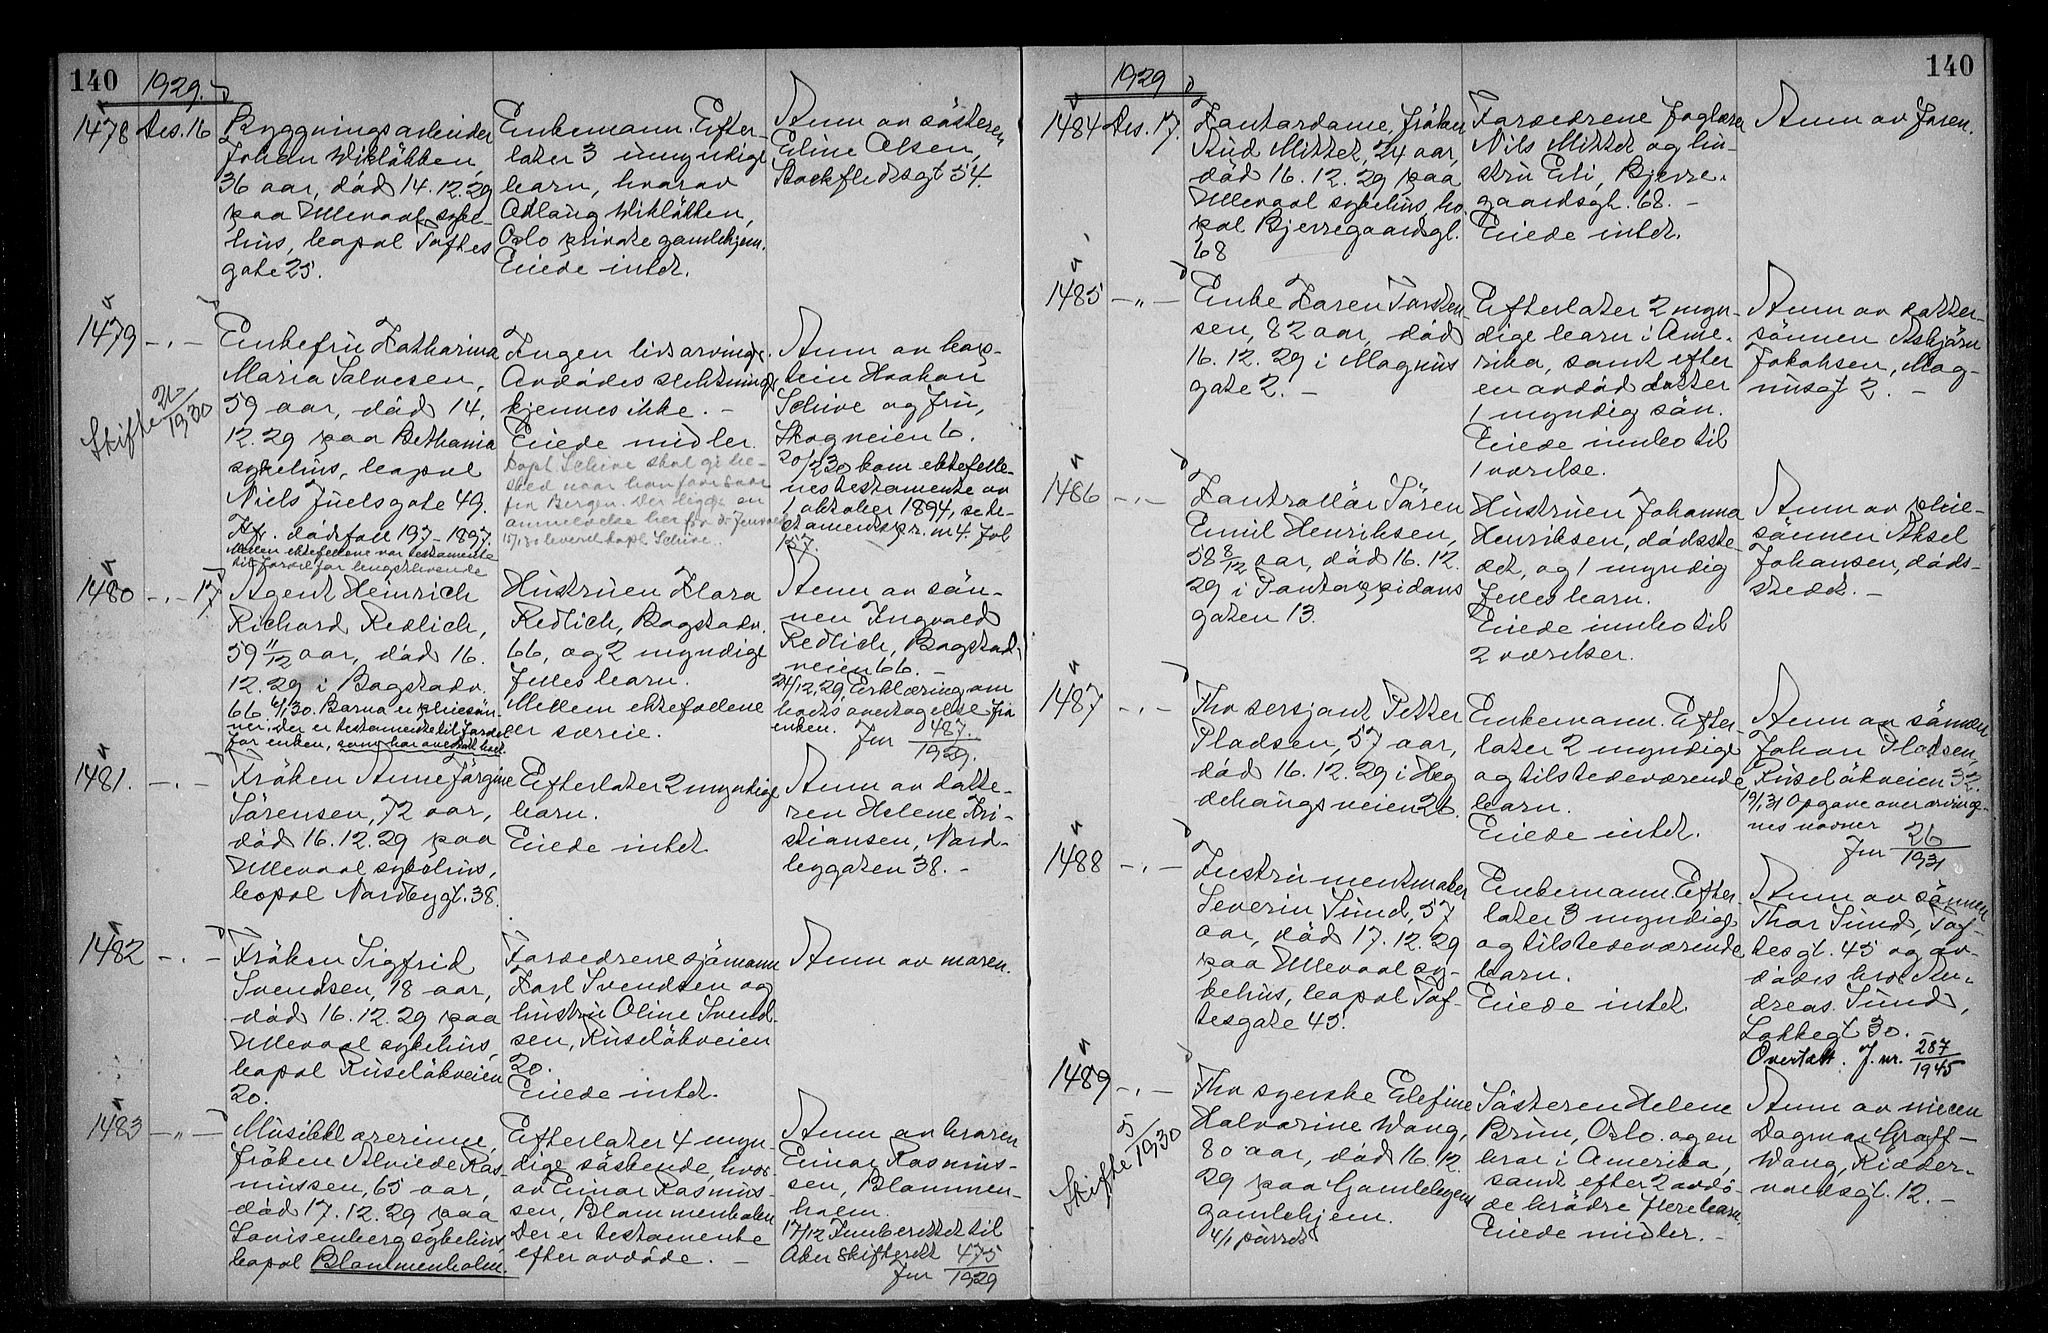 140
1929.
1478 Des. 16
Bygningsarbeider
Johan Wikløkken,
36 aar, død 14.12.29
paa Ullevaal syke-
hus, bopal Toftes
gate 25.
Enkemann. Efter-
later 3 umyndige
barn, hvorav
Adlaug Wikløkken,
Oslo private gamlehjem.
Eiede intet.
Anm av søsteren
Eline Olsen,
Stockfledsgt 54.
1479 -"-
Skifte 2/1930
Enkefru Katharina
Maria Salvesen,
59 aar, død 14.
12.29 paa Bethania
sykehus, bopal
Niels Juelsgate 49.
Kfr. dødsfall 197-1897.
Mellem ektefellene var testamente
til fordel for lengstlevende
Ingen livsarvinge.
Avdødes slektninge
kjennes ikke. -
Eiede midler.
Kapt. Schive skal gi be-
sked naar han faar svar
fra Bergen. Der ligge en
anmeldelse her for
leveret kapt. Schive.
Anm av kap-
tein Haakon
Schive og fru,
Skogveien 6.
20/1230 kom ektefelle-
nes testamente av
1 oktober 1894, se te-
stamentspr. nr 4. fol
157.
1480 -"- 17.
Agent Heinrich
Richard Redlich,
59 11/12 aar, død 16.
12.29 i Bogstadv.
66. 6/1 30. Barna er pleiesøn-
ner. Der er testamente til fordel
for enken, som har overtatt boet.
Hustruen Klara
Redlich, Bogstadv.
66, og 2 myndige
felles barn.
Mellem ektefellene
er særeie.
Anm av søn-
nen Ingvald
Redlich, Bogstad-
veien 66. -
24/12.29, Erklæring om
boets overtagelse fra
enken. Jnr 487/1929.
1481. -"-
Frøken Anne Jørgine
Sørensen, 72 aar,
død 16.12.29 paa
Ullevaal sykehus,
bopal Nordbygt. 38.
Efterlater 2 myndige
barn.
Eiede intet
Anm av datte-
ren Helene Kri-
stiansen, Nord-
bygaten 38. -
1482 -"-
Frøken Sigfrid
Svendsen, 18 aar,
død 16.12.29 paa
Ullevaal sykehus,
bopal Ruseløkveien
20.
Forældrene sjømann
Karl Svendsen og
hustru Oline Svend-
sen, Ruseløkveien
20.
Eiede intet.
Anm av moren.
1483 -"-
Musikklærerinne,
frøken Alvilde Ras-
mussen, 65 aar,
død 17.12.29 paa
Lovisenberg sykehus
bopal Blommenholm.
Efterlater 4 myn-
dige søskende, hvor-
av Einar Rasmus-
sen, Blommenholm
Der er testamente
efter avdøde. -
Anm av broren
Einar Rasmus-
sen, Blommen-
holm.
17/12 Innberettet til
Aker skifterett 475
Jnr 1929
140
1929
1484 Des. 17.
Kontordame, frøken
Rud Mittet, 24 aar,
død 16.12.29 paa
Ullevaal sykehus, bo
pal Bjerregaardsgt.
68
Forældrene faglærer
Nils Mittet og hu-
stru Eli, Bjerre-
gaardsgt. 68. -
Eiede intet.
Anm av faren.
1485 -"-
Enke Karen Torsten-
sen, 82 aar, død
16.12.29 i Magnus
gate 2. -
Efterlater 2 myn-
dige barn i Ame-
rika, samt efter
en avdød datter
1 myndig søn.
Eiede innbo til
1 værelse.
Anm av datter-
sønnen Asbjørn
Jakobsen, Mag-
nusgt 2. -
1486 -"-
Kontrollør Søren
Emil Henriksen,
58 8/12 aar, død 16.12.
29 i Pontoppidans
gaten 13.
Hustruen Johanna
Henriksen, dødsste-
det, og 1 myndig
felles barn.
Eiede innbo til
2 værelser.
Anm av pleie-
sønnen Aksel
Johansen, døds-
stedet. -
1487 -"-
Fhv sersjant Petter
Pladsen, 57 aar,
død 16.12.29 i Heg
dehaugsveien 26.
Enkemann. Efter-
later 2 myndige
og tilstedeværende
barn.
Eiede intet.
Anm av sønnen
Johan Pladsen,
Ruseløkveien 32.
19/1 31 Opgave over arvinge-
nes navner
Jnr 26/1931
1488 -"-
Instrumentmaker
Severin Sund, 57
aar, død 17.12.29
paa Ullevaal sy-
kehus, bopal Tof-
tesgate 45.
Enkemann. Efter-
later 3 myndige
og tilstedeværende
barn.
Eiede intet.
Anm av sønnen
Thor Sund, Tof-
tesgt. 45 og av-
dødes bror An-
dreas Sund,
Lakkegt 30.
Overtatt. J.nr. 287/1945
1489 -"-
Skifte 5/1930
Fhv syerske Elefine
Halvorine Wang,
80 aar, død 16.12.
29 paa Gamlebyens
gamlehjem.
Søsteren Helene
Brun, Oslo. og en
bror i Amerika,
samt efter 2 avdø-
de brødre flere barn.
Eiede midler. -
Anm av niecen
Dagmar Graff-
Wang, Ridder-
voldsgt. 12. -